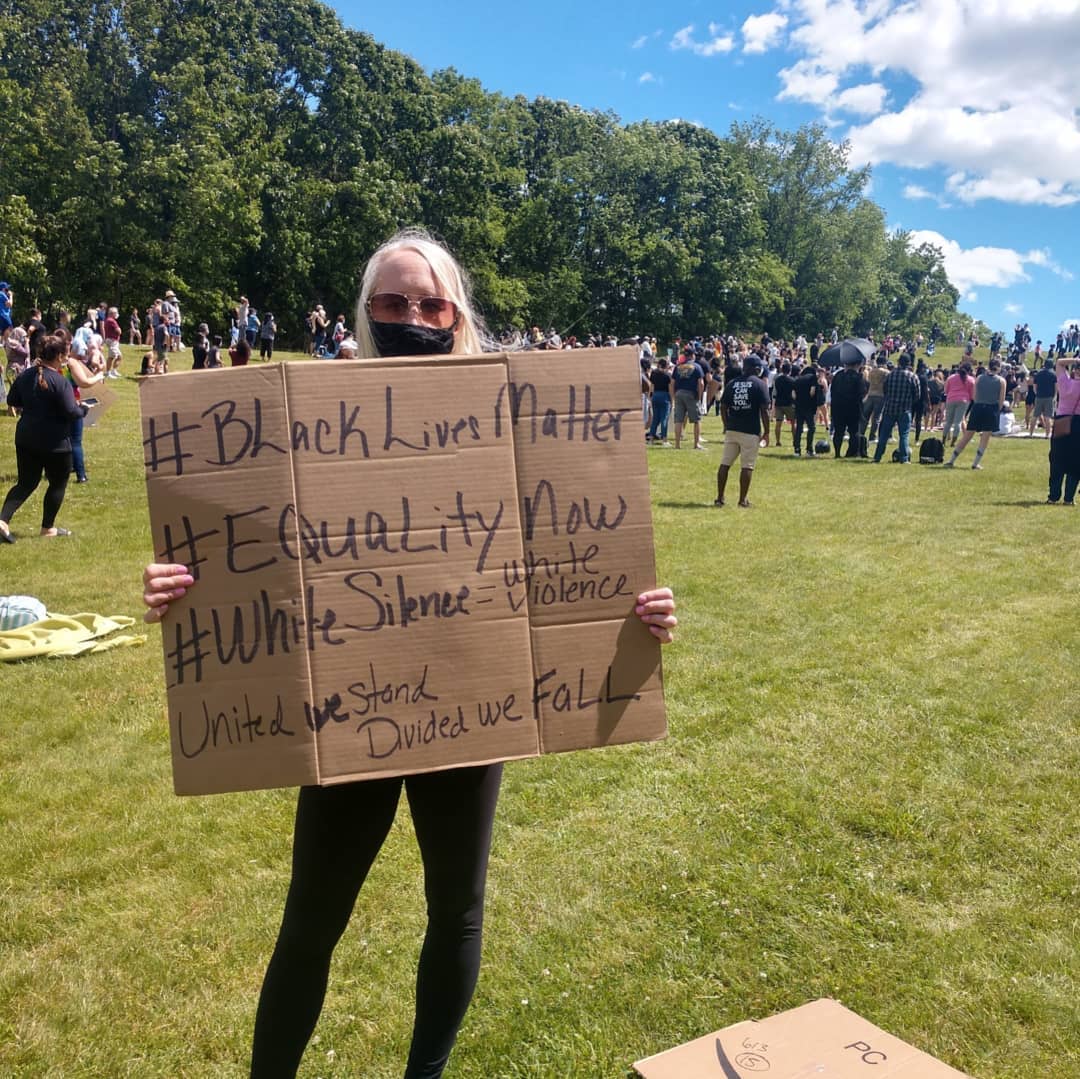 #BLack Lives Matter
#EQuaLity Now
#White Silence = white violence
United we stand
Divided we FaLL
JESUS
CAN
SAVE
YOU
PC
6/3
15